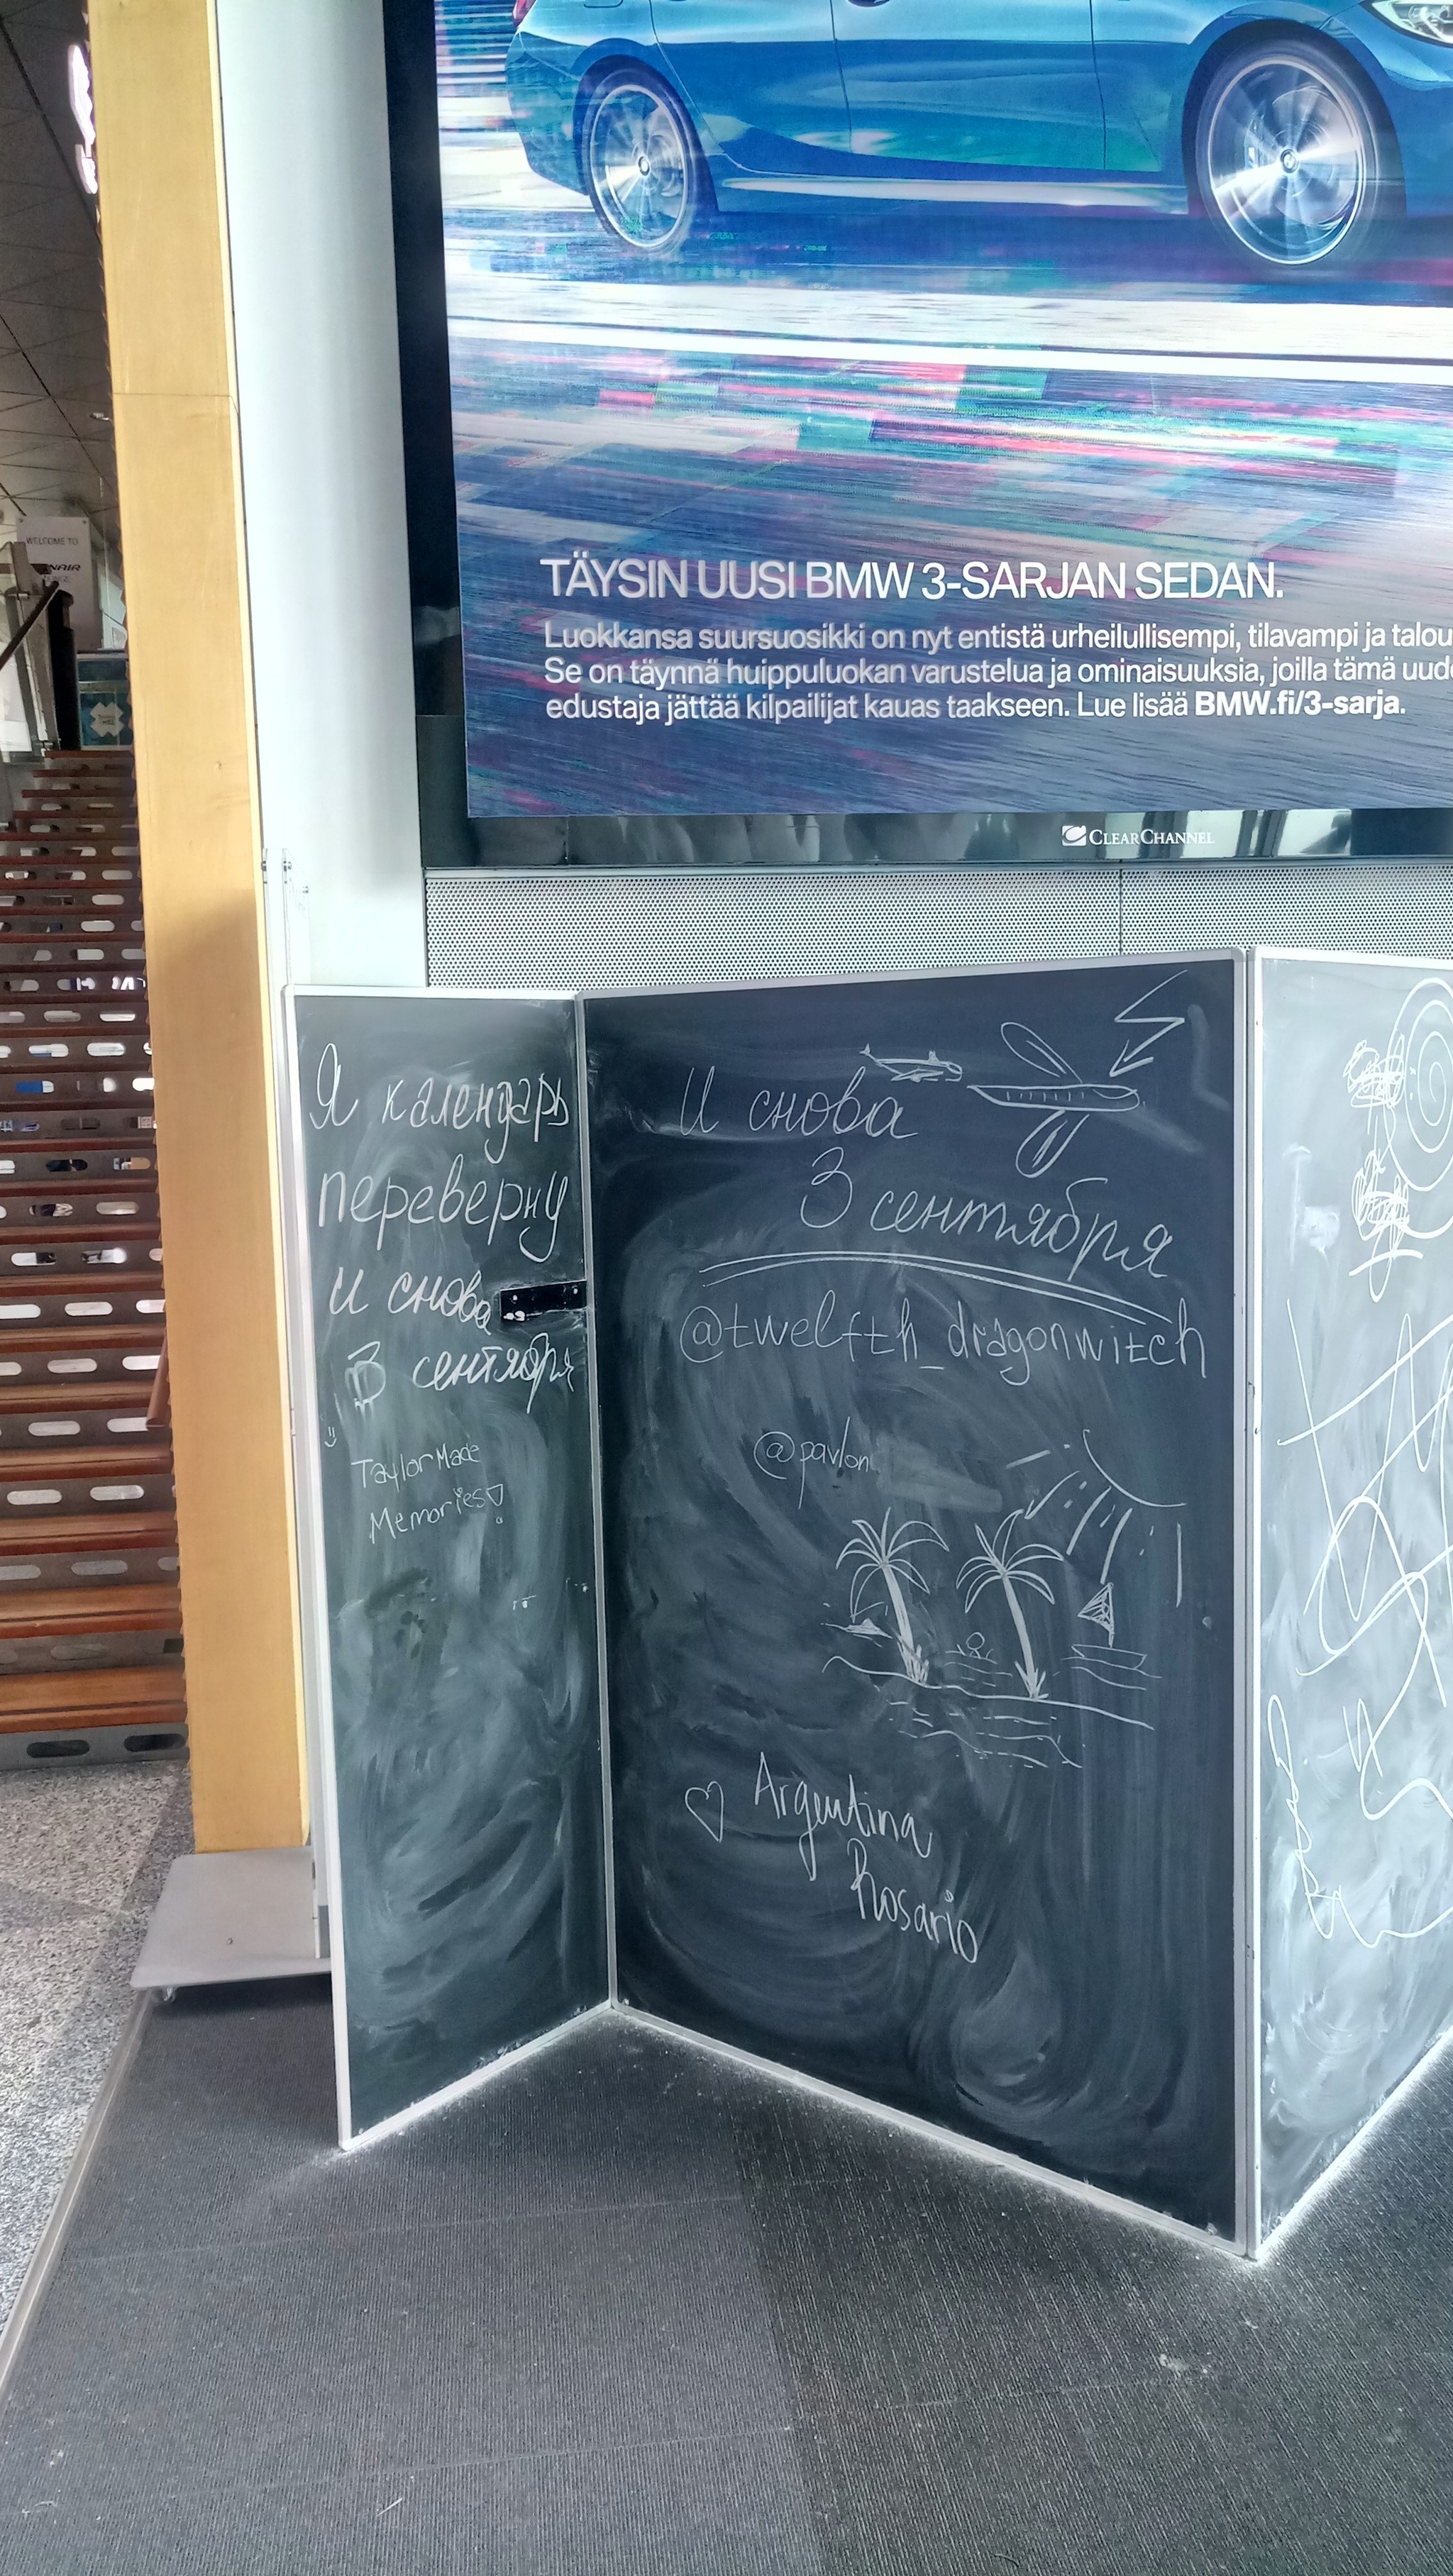 WELCOME TO
TÄYSIN UUSI BMW 3-SARJAN SEDAN.
Luokkansa suursuosikki on nyt entistä urheilullisempi, tilavampi ja
Se on täynnä huippuluokan varustelua ja ominaisuuksia, joilla tämä
edustaja jättää kilpailijat kauas taakseen. Lue lisää BMW.fi/3-sarja.
CLEAR CHANNEL
Я календарь
переверну
и снова
3 сентября
Taylor Made
Memories
И снова
3 сентября
@twelfth_dragonwitch
@pavlon
Argentina
Rosario